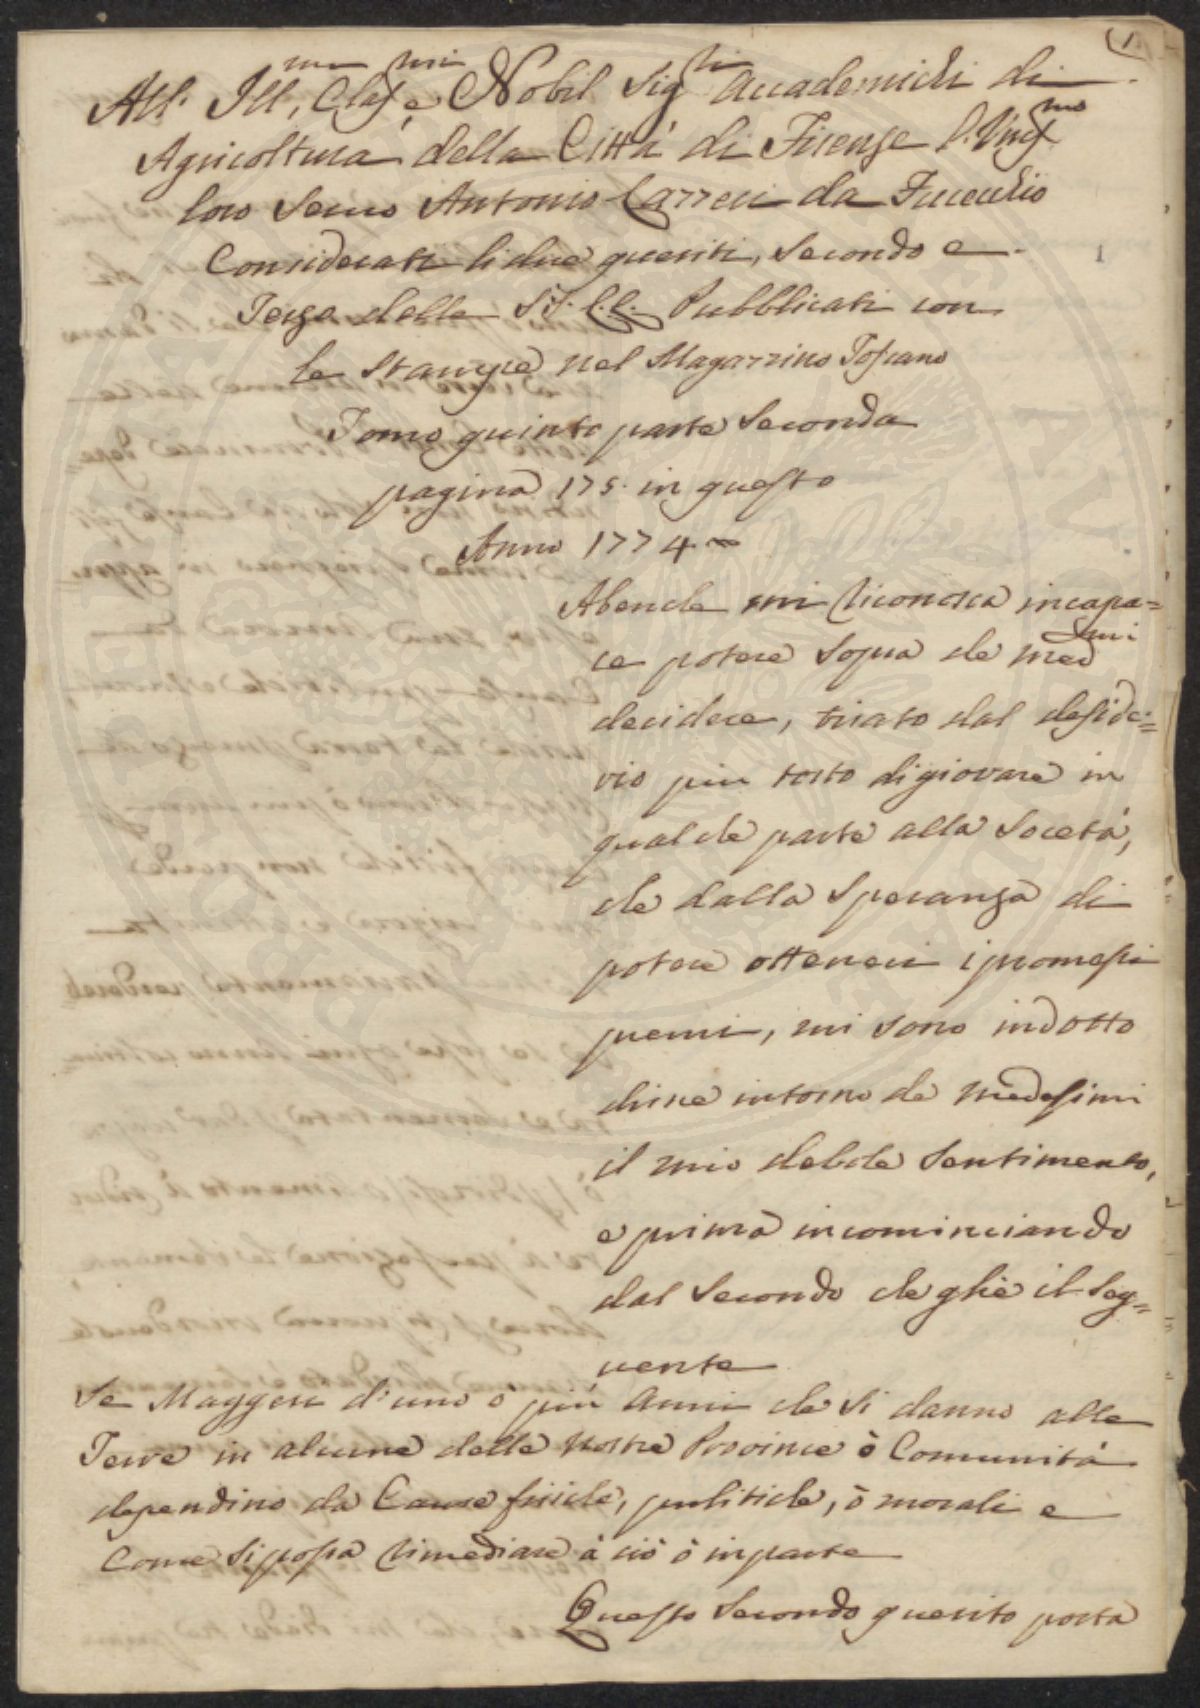 (1.
All' Ill.mi, Claſ.mi e Nobil Sig.ri Accademichi di
Agricoltura della Città di Firenze l'
loro Servo Antonio Carreri da Fucechio
Considerati li due quesiti, Secondo e
Terzo delle SS. LL. Pubblicati con
le Stampe nel Magazzino Toſcano
Tomo quinto parte Seconda
pagina 175. in queſto
Anno 1774
1
Abenche mi riconosca incapa=
ce potere Sopra de med.mi
decidere, tirato dal deſide=
rio piu tosto di giovare in
qualche parte alla Socetà,
che dalla Speranza di
potere ottenere i promeſſi
premi, mi sono indotto
dirne intorno de medeſimi
il mio debole Sentimento,
e prima incominciando
dal Secondo che gliè il Seg=
uente
Se Maggesi d'uno ò più Anni che Si danno alle
Terre in alcune delle nostre Provincie ò Comunità
dependino da Cause fisiche, pulitiche, ò morali e
Come Si poſſa rimediare à ciò ò in parte
Queſto Secondo quesito porta